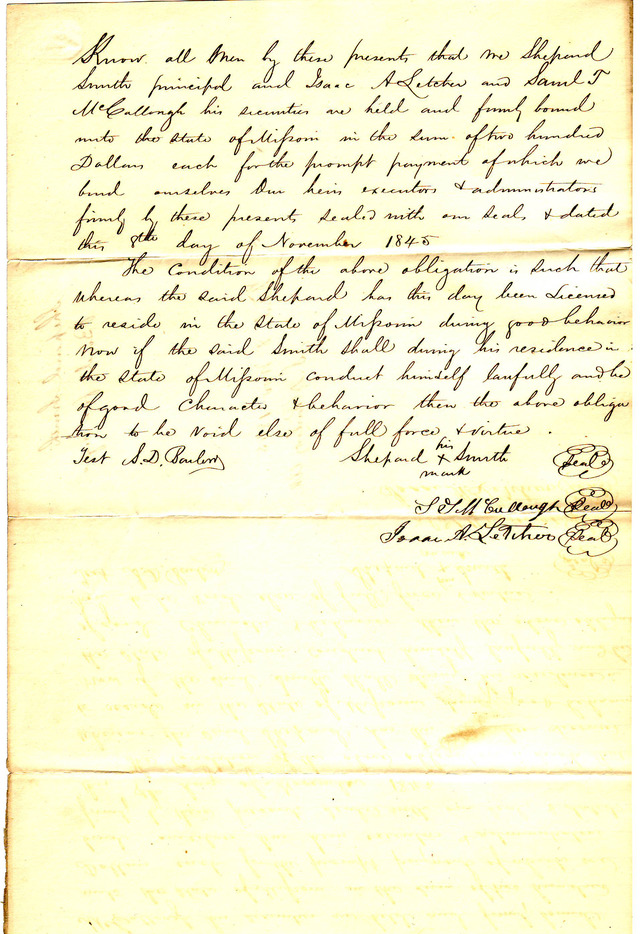 Know all Men by these presents that we Shepard
Smith principal and Isaac A Letcher and Saml T
McCullough his securities are held and firmly bound
unto the state of Missouri in the sum of two hundred
Dollars each for the prompt payment of which we
bind ourselves Our heirs executors & administrators
firmly by these presents sealed with our seals & dated
this 8th day of November 1845
The Condition of the above obligation is such that
whereas the said Shepard has this day been Licensed
to reside in the state of Missouri during good behavior
Now if the said Smith shall during his residence in
the state of Missouri conduct himself lawfully and be
of good Character & behavior then the above obliga
tion to be void else of full force & virtue.
Test S. D. Shepard his x mark Smith Seal
S T McCullough Seal
Isaac A. Letcher Seal